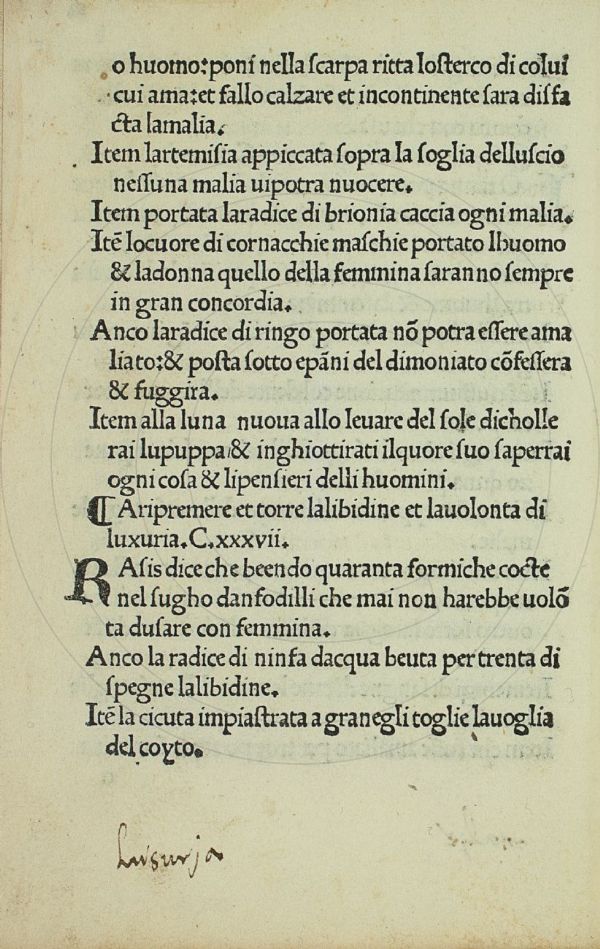 o huomo:poni nella scarpa ritta losterco di colui
cui ama:et fallo calzare et incontinente sara disfa
cta lamalia.
Item lartemisia appiccata sopra la soglia delluscio
nessuna malia uipotra nuocere.
Item portata laradice di brionia caccia ogni malia.
Itē locuore di cornacchie maschie portato lhuomo
& ladonna quello della femmina saranno sempre
in gran concordia.
Anco laradice di ringo portata nō potra essere ama
liato:& posta sotto epāni del dimoniato cōfessera
& fuggira.
Item alla luna nuoua allo leuare del sole dicholle
rai lupuppa & inghiottirati ilquore suo saperrai
ogni cosa & lipensieri delli huomini.
¶ Aripremere et torre lalibidine et lauolonta di
luxuria.C.xxxvii.
RAsis dice che beendo quaranta formiche cocte
nel sugho danfodilli che mai non harebbe uolō
ta dusare con femmina.
Anco la radice di ninfa dacqua beuta per trenta di
spegne lalibidine.
Itē la cicuta impiastrata a granegli toglie lauoglia
del coyto.
lusurja